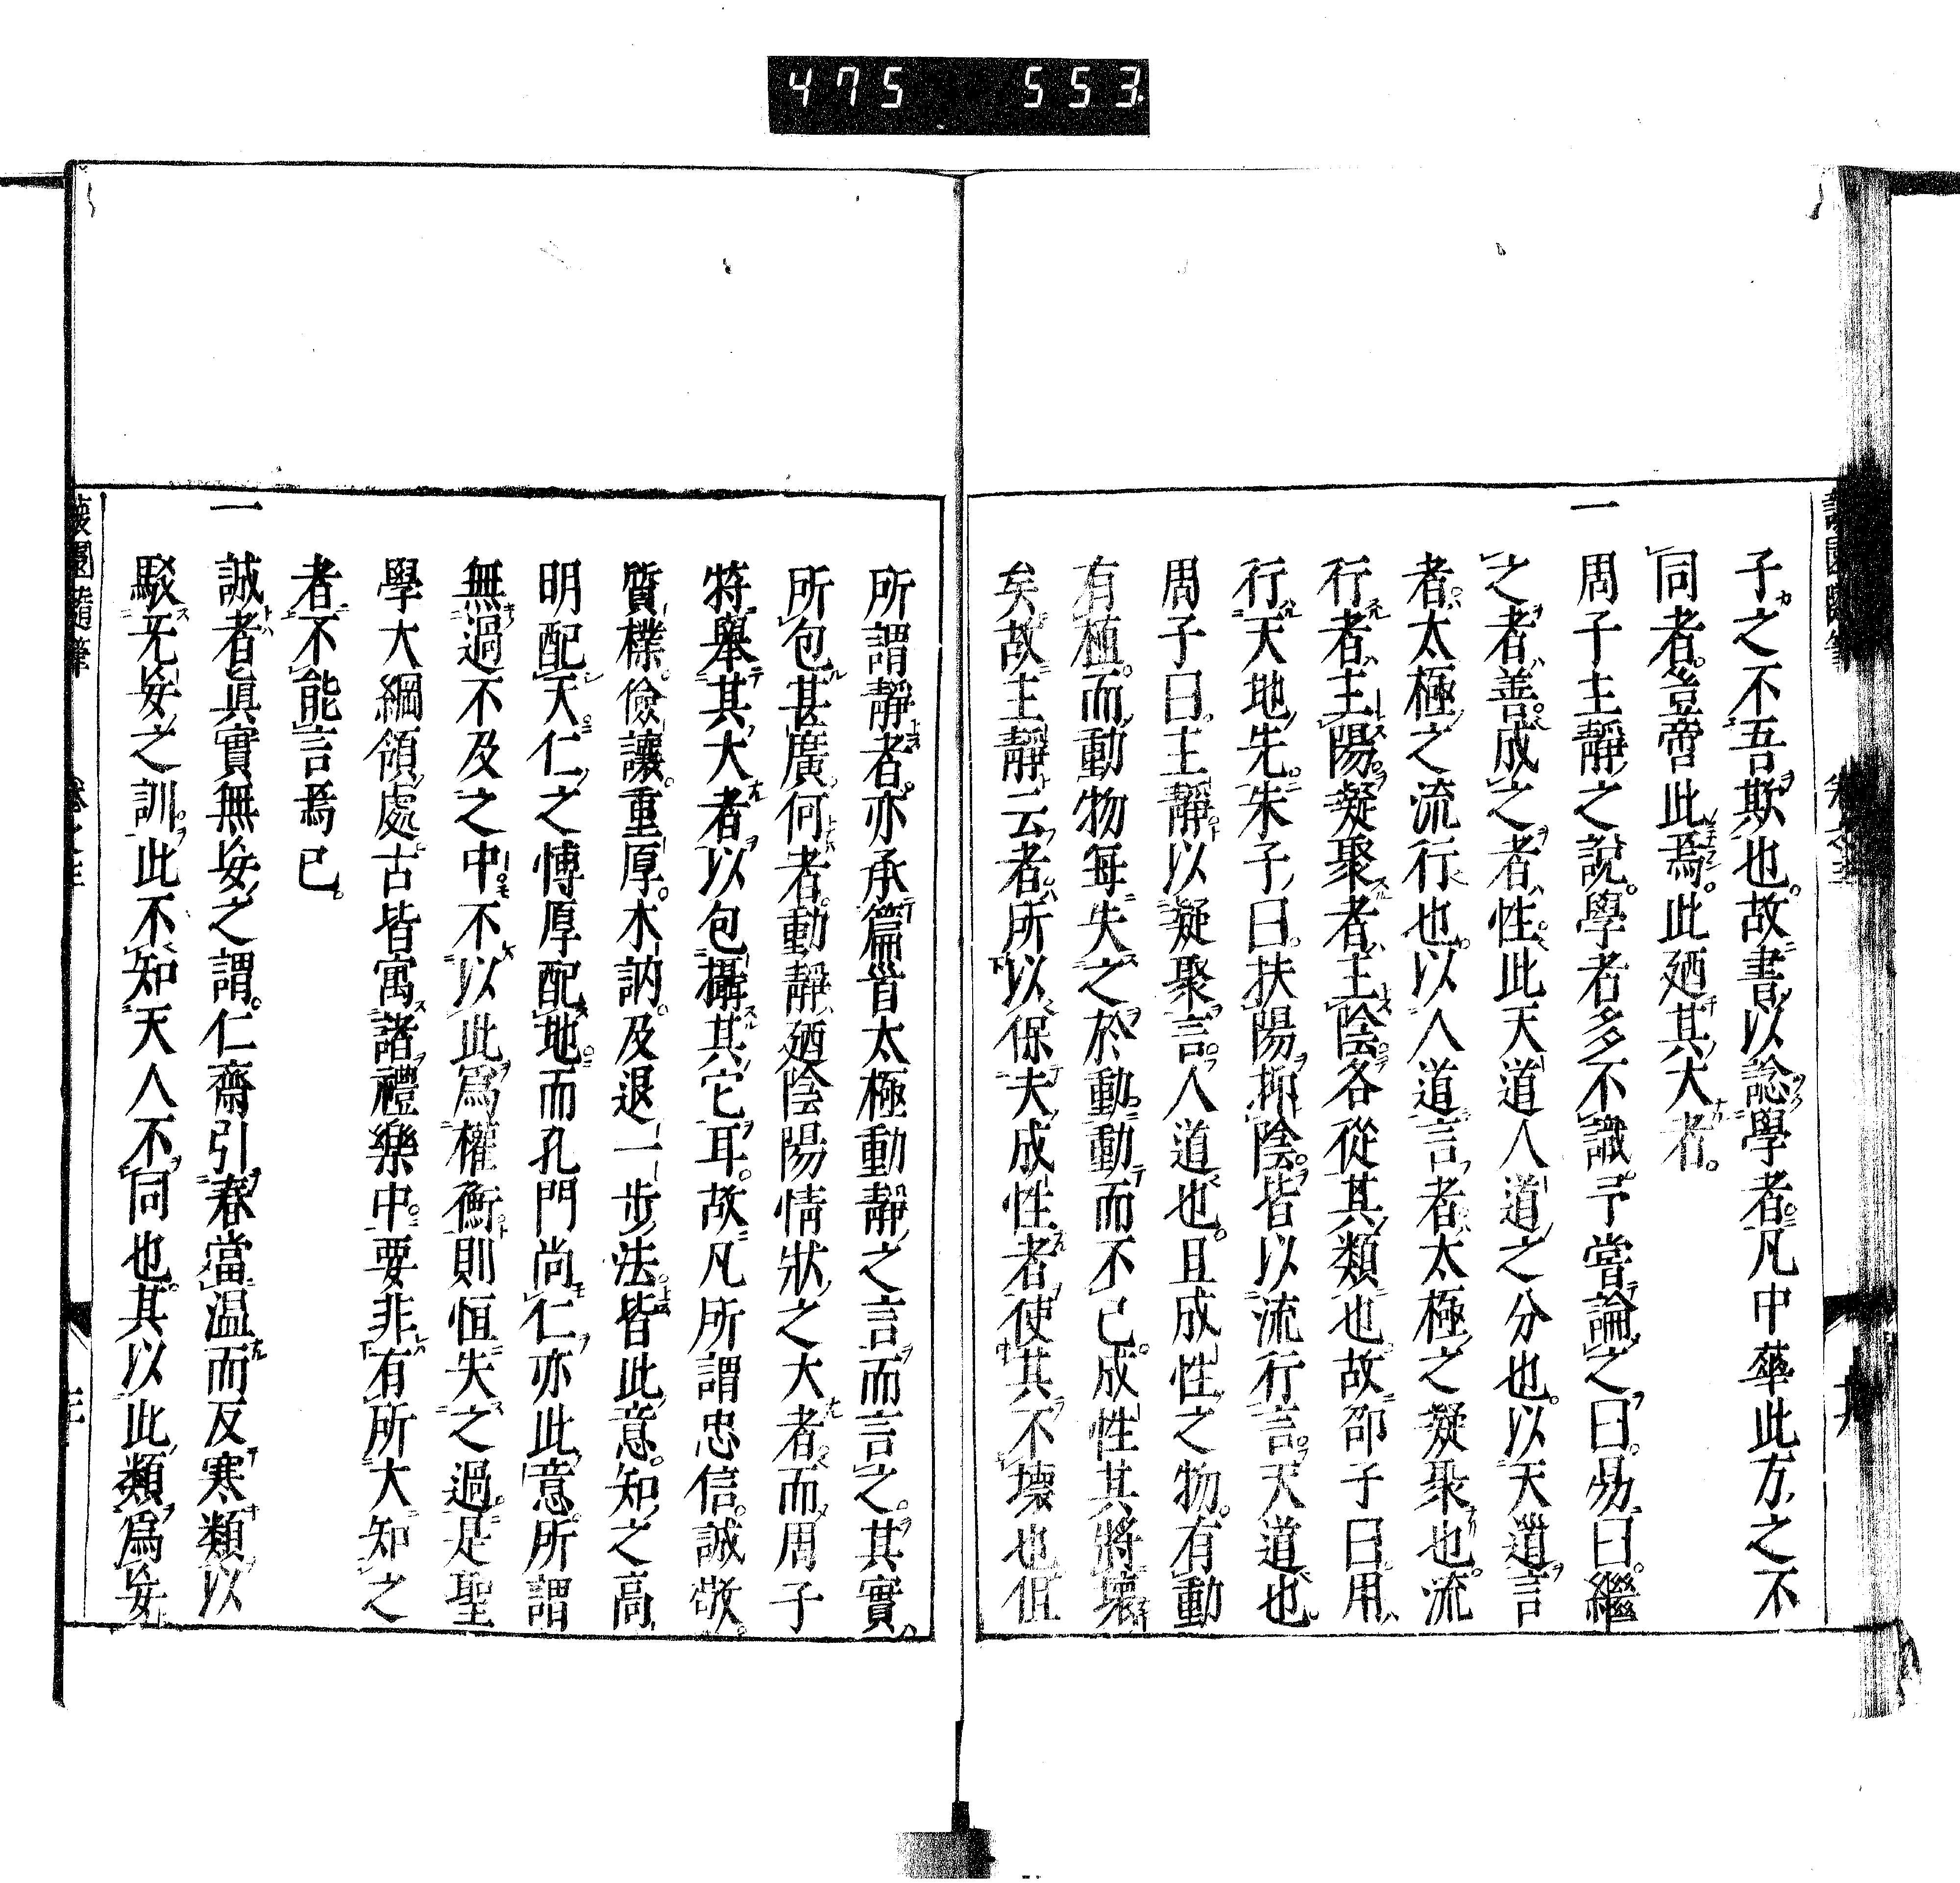 475 553.
子之不吾欺也故書以諗學者凡中華此方之不
同者豈啻此焉此廼其大者
一周子主靜之說學者多不識予嘗論之曰易曰繼
之者善成之者性此天道人道之分也以天道言
者太極之流行也以人道言者太極之凝聚也流
行者主陽凝聚者主陰各從其類也故邵子曰用
行天地先朱子曰扶陽抑陰皆以流行言天道也
周子曰主靜以凝聚言人道也且成性之物有動
有植而動物每失之於動動而不已成性其將壞
矣故主靜云者所以保夫成性者使其不壞也但
所謂靜者亦承篇首太極動靜之言而言之其實
所包甚廣何者動靜廼陰陽情狀之大者而周子
特舉其大者以包攝其它耳故凡所謂忠信誠敬
質樸儉讓重厚木訥及退一步法皆此意知之高
明配天仁之博厚配地而孔門尚仁亦此意所謂
無過不及之中不以此爲權衡則恒失之過是聖
學大綱領處古皆寓諸禮樂中要非有所大知之
者不能言焉已
一誠者眞實無妄之謂仁齋引春當温而反寒類以
駁无妄之訓此不知天人不同也其以此類爲妄
蘐園隨筆